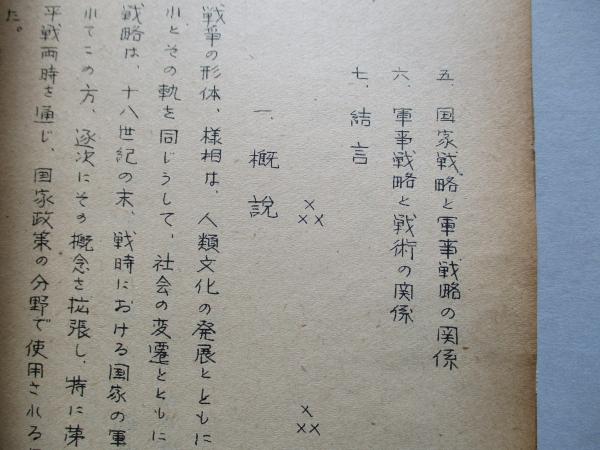 五、国家戦略と軍事戦略の関係
六、軍事戦略と戦術の関係
七、結言
×
××
×
××
一、概説
戦争の形体、様相は、人類文化の発展とともに
れとその軌を同じうして、社会の変遷とともに
戦略は、十八世紀の末、戦時における国家の軍
れてこの方、逐次にその概念を拡張し、特に第
平戦両時を通じ、国家政策の分野で使用される
た。